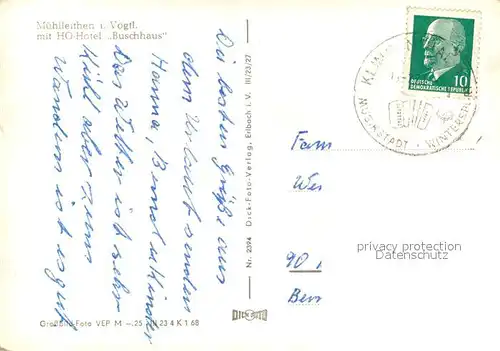 Mühlleithen i. Vogtl.
mit HO-Hotel „Buschhaus"
Die besten Grüße aus
dem Urlaub senden
Hanna, Bernd u. Kinder
Das Wetter ist sehr
kühl aber zum
Wandern ist es gut
Nr. 2394 Dick-Foto-Verlag, Erlbach i. V. III/23/27
DICK FOTO
Großbild-Foto VEP M -.25 III 23 4 K 1 68
10
DEUTSCHE
DEMOKRATISCHE REPUBLIK
MUSIKSTADT · WINTERSP
Fam
Wer
90
privacy protection
Datenschutz